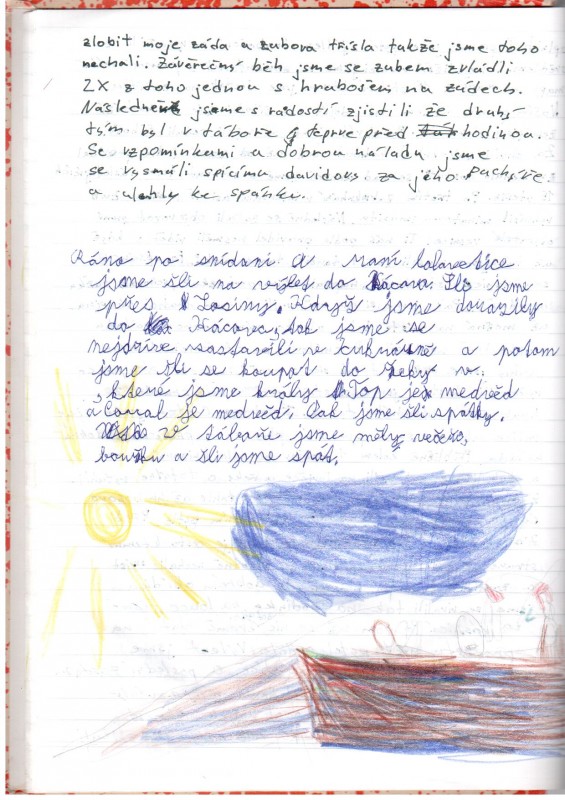 zlobit moje záda a zubova třísla takže jsme toho
nechali. Závěrečný běh jsme se zubem zvládli
2X z toho jednou s hrabošem na zádech.
Následně jsme s radostí zjistili že druhý
tým byl v táboře teprve před hodinou.
Se vzpomínkami a dobrou náladu jsme
se vysmáli spícímu davidovy za jeho Puchýře
a ulehly ke spánku.
Ráno po snídani a raní
jsme šli na výlet do Kácova. Šli jsme
přes Losiny. Když jsme dorazily
do Kácova, tak jsme se
nejdříve zastavili v cukrárně a potom
jsme šli se koupat do řeky v
které jsme hrály Top je medvěd
a Coural je medvěd. Pak jsme šli spátky.
V táboře jsme měly večeři,
bouřku a šli jsme spát.